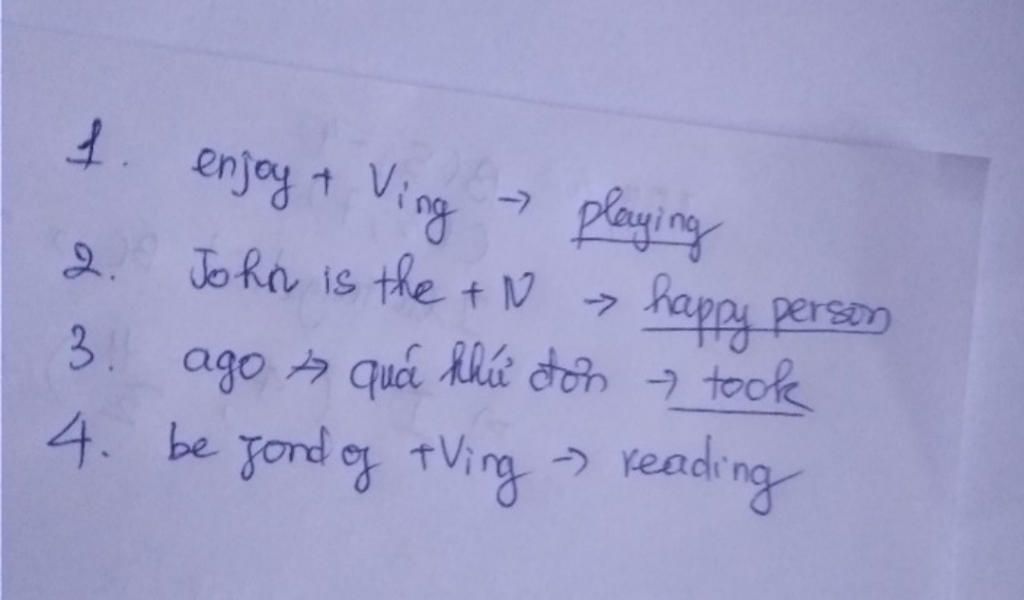 1. enjoy + Ving → playing
2. John is the + N → happy person
3. ago → quá khứ đơn → took
4. be fond of + Ving → reading